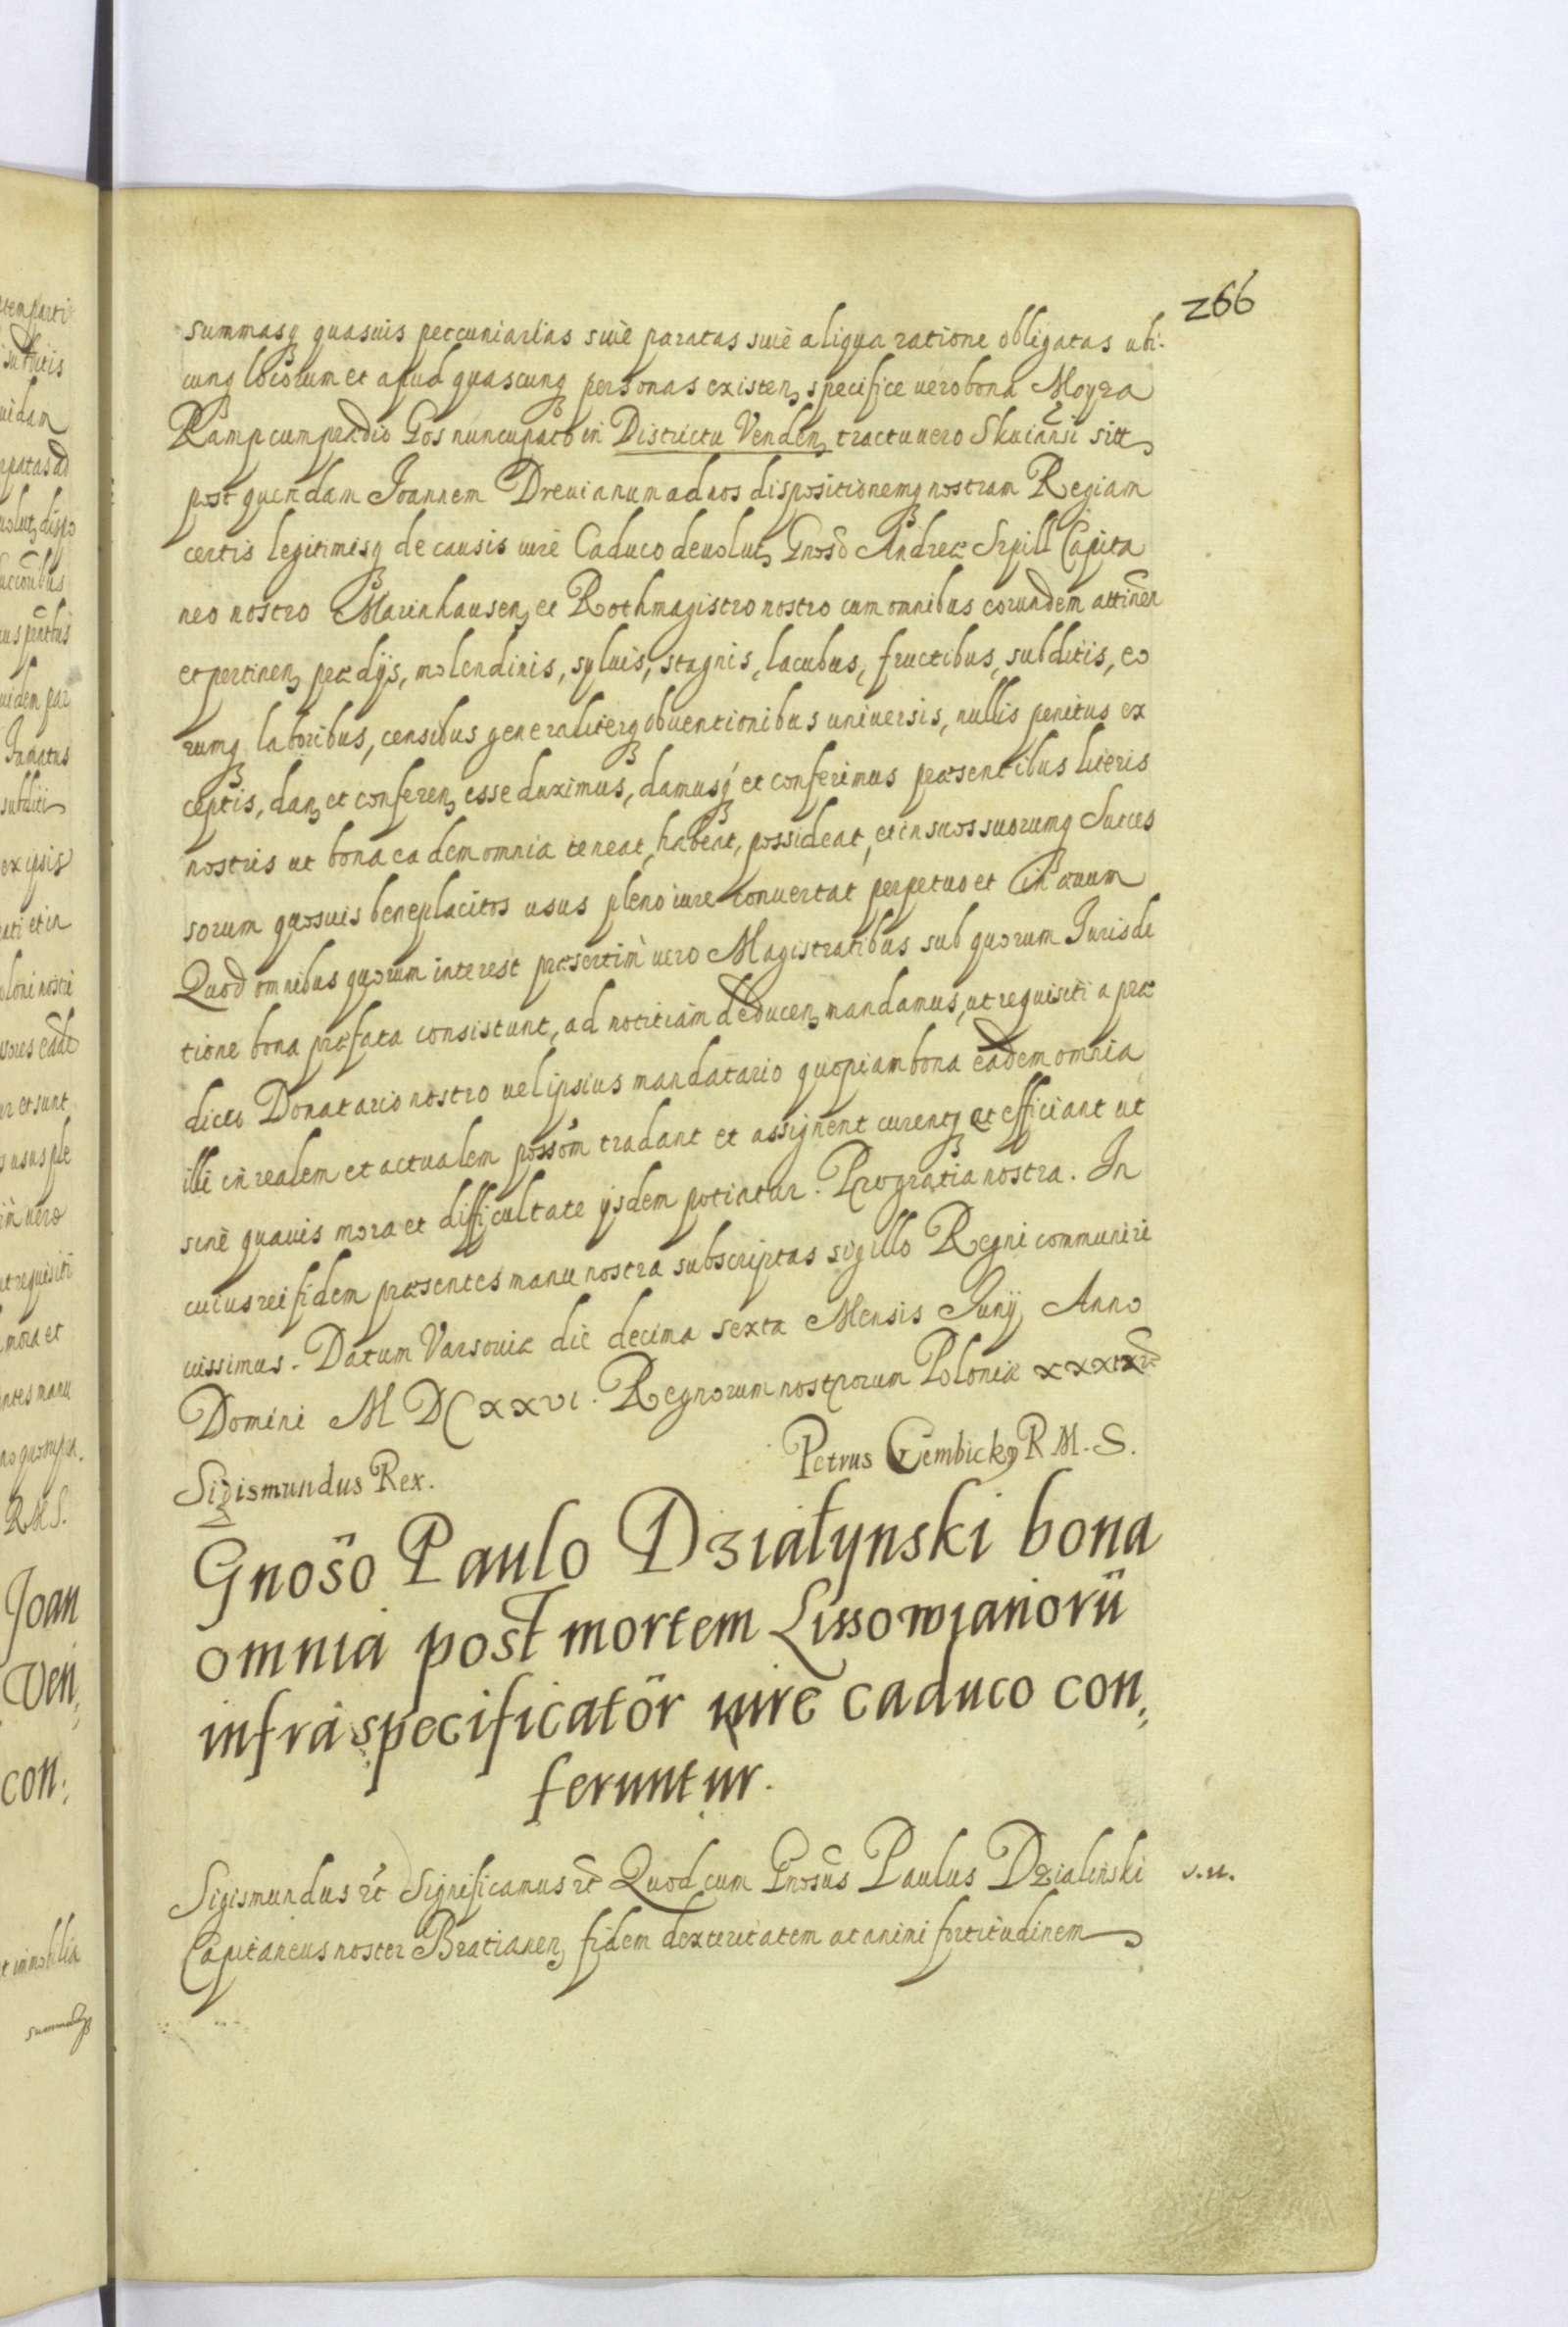 266
summasq quasuis peccuniarias siue paratas siue aliqua ratione obligatas ubi-
cunq locorum et apud quascunq personas existen, specifice vero bona Moyza
Kamp cum prædio Gos nuncupato in Districtu Venden, tractu vero Skuiansi sitt,
post quendam Joannem Dreuianum ad nos dispositionemq nostram Regiam
certis legitimisq de causis iure Caduco devolut, Gnoso Andreæ Srpill Capita
neo nostro Marinhausen, et Rothmagistro nostro cum omnibus eorundem attinen
et pertinen, prædijs, molendinis, syluis, stagnis, lacubus, fructibus, subditis, eo
rumq laboribus, censibus generaliterq obventionibus universis, nullis penitus ex
ceptis, dan, et conferen, esse duximus, damusq et conferimus præsentibus literis
nostris ut bona eadem omnia teneat, habeat, possideat, et in suos suorumq Succes
sorum quosuis beneplacitos usus pleno iure convertat perpetuo et in ævum
Quod omnibus quorum interest præsertim vero Magistratibus sub quorum Jurisdi
tione bona præfata consistunt, ad notitiam deducen, mandamus, ut requisiti a præ
dicto Donatario nostro vel ipsius mandatario quopiam bona eadem omnia
illi in realem et actualem possom tradant et assignent curentq et efficiant ut
sine quavis mora et difficultate ijsdem potiatur. Pro gratia nostra. In
cuius rei fidem præsentes manu nostra subscriptas sigillo Regni communiri
iussimus. Datum Varsoviæ die decima sexta Mensis Junij Anno
Domini M DC XXVI. Regnorum nostrorum Poloniæ
Sigismundus Rex.
Petrus Gembicky R M. S.
Gnoso Paulo Działynski bona
omnia post mortem Lissowianorũ
infra specificator iure caduco con,
feruntur.
Sigismundus etc Significamus etc Quod cum Gnosus Paulus Dzialinski
s. n.
Capitaneus noster Bratianen, fidem dexteritatem at animi fortitudinem